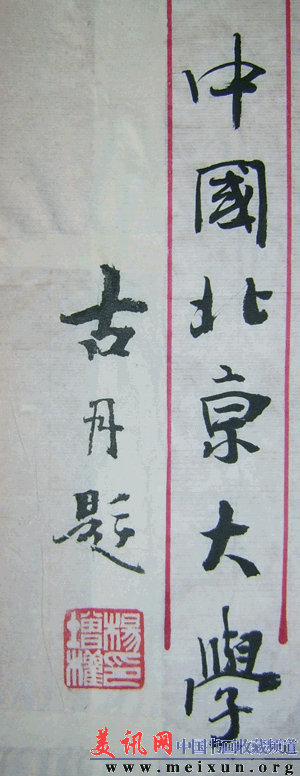 中國北京大學
古月題
楊增權印
美讯网 中国书画收藏频道
www.meixun.org